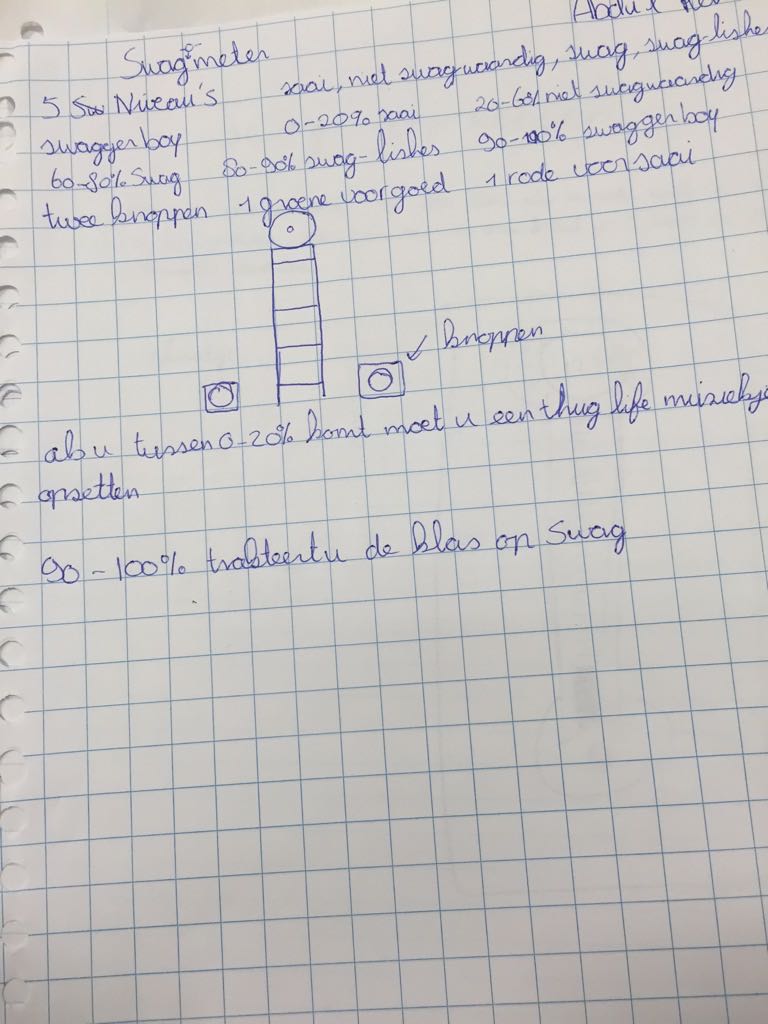 Abdul
Swagometer
5 Niveau's saai, niet swagwaardig, swag, swag-lishes
swaggerboy 0-20% saai 20-60% niet swagwaardig
60-80% Swag 80-90% swag-lishes 90-100% swaggerboy
twee knoppen 1 groene voor goed 1 rode voor saai
knoppen
als u tussen 0-20% komt moet u een thug life
opzetten
90-100% trakteert u de klas op Swag